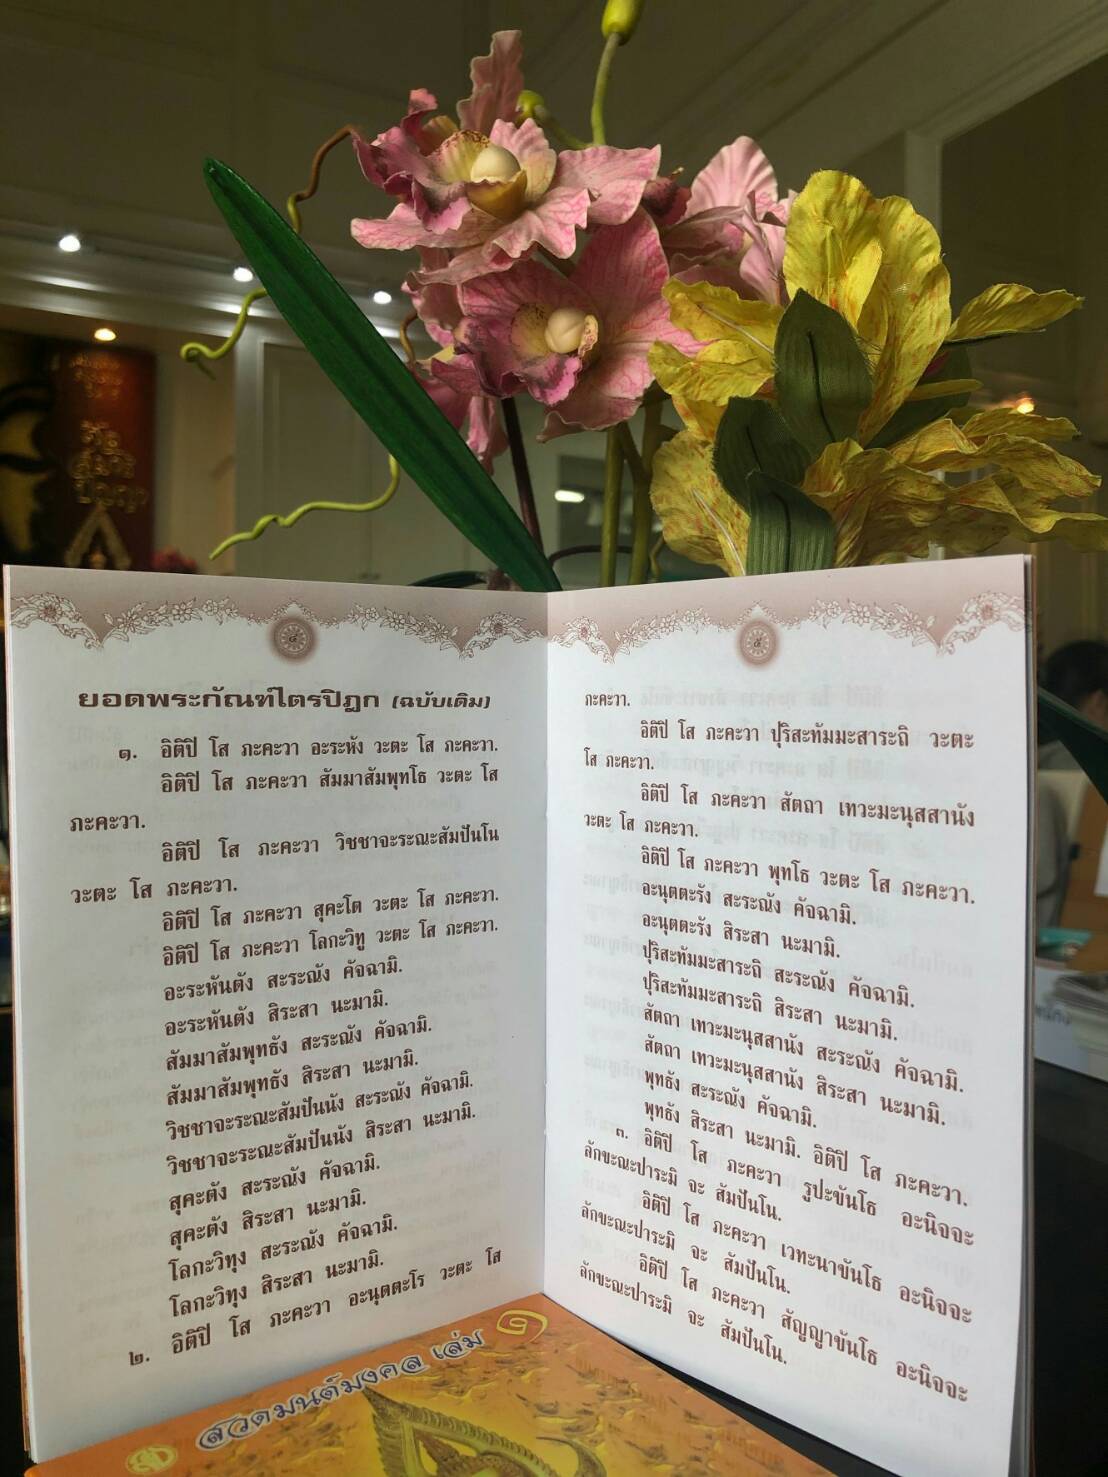 ๔
ยอดพระกัณฑ์ไตรปิฎก (ฉบับเดิม)
๑. อิติปิ โส ภะคะวา อะระหัง วะตะ โส ภะคะวา.
อิติปิ โส ภะคะวา สัมมาสัมพุทโธ วะตะ โส
ภะคะวา.
อิติปิ โส ภะคะวา วิชชาจะระณะสัมปันโน
วะตะ โส ภะคะวา.
อิติปิ โส ภะคะวา สุคะโต วะตะ โส ภะคะวา.
อิติปิ โส ภะคะวา โลกะวิทู วะตะ โส ภะคะวา.
อะระหันตัง สะระณัง คัจฉามิ.
อะระหันตัง สิระสา นะมามิ.
สัมมาสัมพุทธัง สะระณัง คัจฉามิ.
สัมมาสัมพุทธัง สิระสา นะมามิ.
วิชชาจะระณะสัมปันนัง สะระณัง คัจฉามิ.
วิชชาจะระณะสัมปันนัง สิระสา นะมามิ.
สุคะตัง สะระณัง คัจฉามิ.
สุคะตัง สิระสา นะมามิ.
โลกะวิทุง สะระณัง คัจฉามิ.
โลกะวิทุง สิระสา นะมามิ.
๒. อิติปิ โส ภะคะวา อะนุตตะโร วะตะ โส
๕
ภะคะวา.
อิติปิ โส ภะคะวา ปุริสะทัมมะสาระถิ วะตะ
โส ภะคะวา.
อิติปิ โส ภะคะวา สัตถา เทวะมะนุสสานัง
วะตะ โส ภะคะวา.
อิติปิ โส ภะคะวา พุทโธ วะตะ โส ภะคะวา.
อะนุตตะรัง สะระณัง คัจฉามิ.
อะนุตตะรัง สิระสา นะมามิ.
ปุริสะทัมมะสาระถิ สะระณัง คัจฉามิ.
ปุริสะทัมมะสาระถิ สิระสา นะมามิ.
สัตถา เทวะมะนุสสานัง สะระณัง คัจฉามิ.
สัตถา เทวะมะนุสสานัง สิระสา นะมามิ.
พุทธัง สะระณัง คัจฉามิ.
พุทธัง สิระสา นะมามิ. อิติปิ โส ภะคะวา.
๓. อิติปิ โส ภะคะวา รูปะขันโธ อะนิจจะ
ลักขะณะปาระมิ จะ สัมปันโน.
อิติปิ โส ภะคะวา เวทะนาขันโธ อะนิจจะ
ลักขะณะปาระมิ จะ สัมปันโน.
อิติปิ โส ภะคะวา สัญญาขันโธ อะนิจจะ
ลักขะณะปาระมิ จะ สัมปันโน.
สวดมนต์มงคล เล่ม ๑